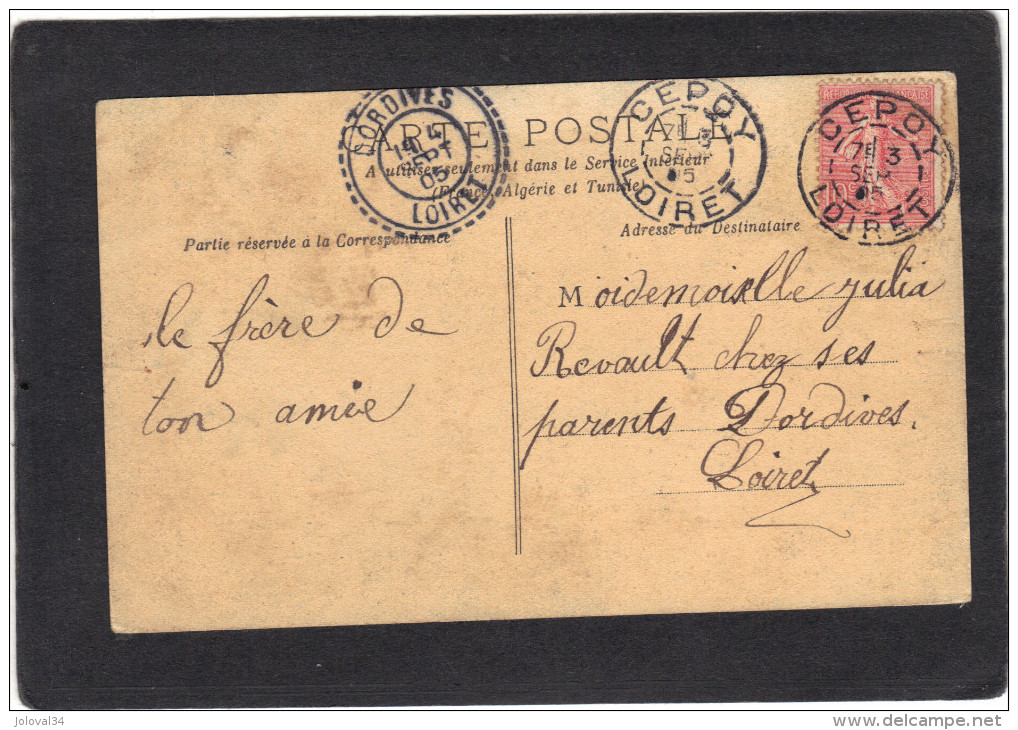 CARTE POSTALE
A utiliser seulement dans le Service Intérieur
(France, Algérie et Tunisie)
DORDIVES
SEPT
05
LOIRET
CEPOY
7E 3
SEPT
05
LOIRET
CEPOY
7E 3
SEPT
05
LOIRET
Partie réservée à la Correspondance
Adresse du Destinataire
le frère de
ton amie
Moidemoiselle Julia
Revault chez ses
parents Dordives.
Loiret
joloval34
www.delcampe.net